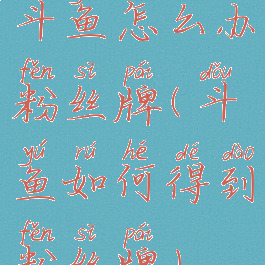 斗鱼怎么办
fěn sī pái dǒu
粉丝牌(斗
yú rú hé dé dào
鱼如何得到
fěn sī pái
粉丝牌)